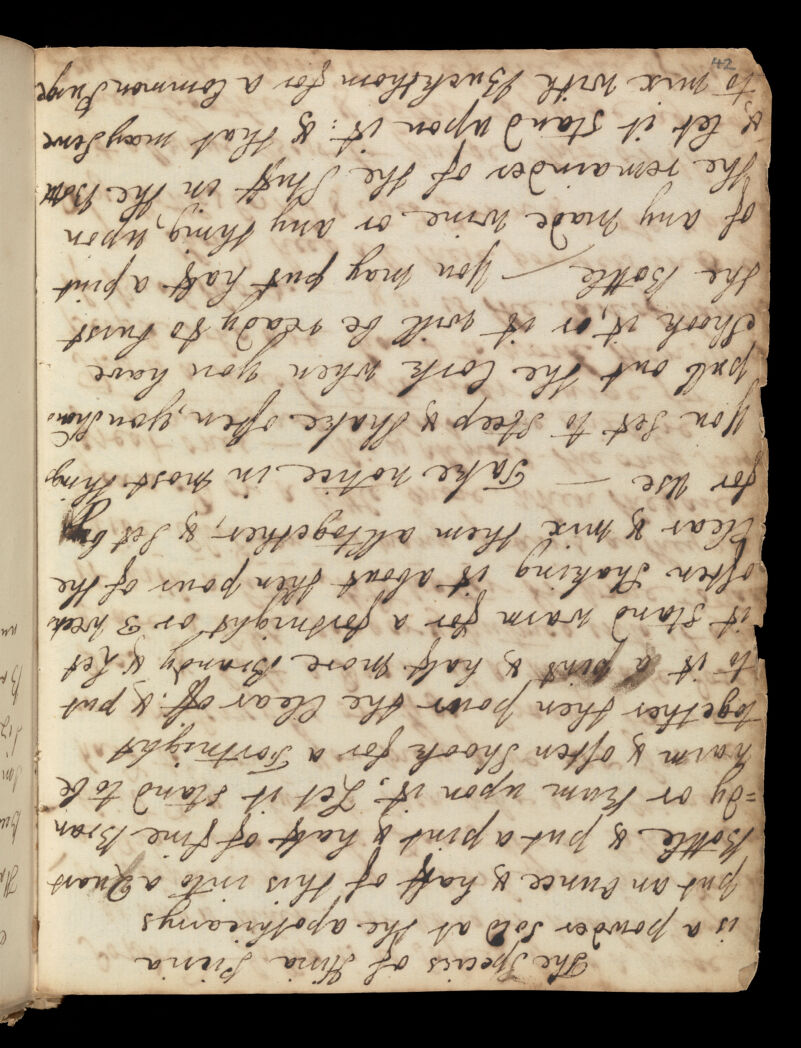 The Species of Hiria Picria
is a powder Sold at the apothicarys
put an ounce & half of this into a Quart
Bottle & put a pint & half of fine Bran
=dy or Rum upon it, Let it stand to be
warm & often Shook for a Fortnight
together then pour the Clear off. & put
to it a pint & half more Brandy & Let
it Stand warm for a fortnight or 3 week
often Shaking it about then pour of the
Clear & mix them alltogether, & Set by
for use — Take notice in most things
You Set to Steep & Shake often, you Shou
pull out the Cork when you have
Shook it, or it will be ready to burst
the Bottle — You may put half a pint
of any made wine or any thing, upon
the remainder of the Stuff in the Bottl
& let it stand upon it: & that may Serve
to mix with Buckthorn for a Common Purge
42